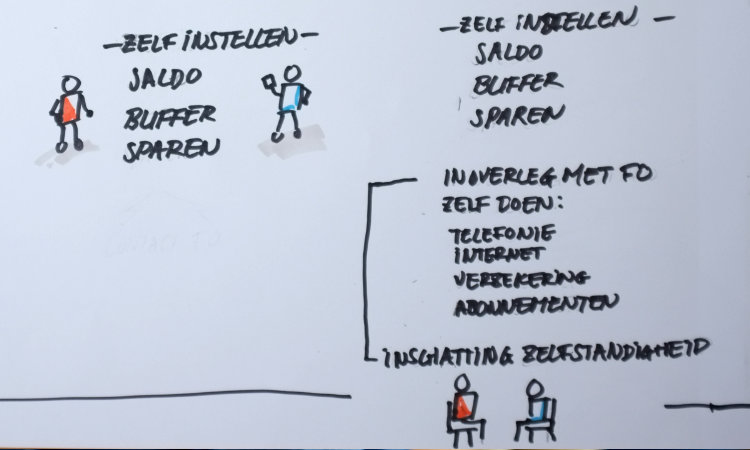 -ZELF INSTELLEN-
SALDO
BUFFER
SPAREN
-ZELF INSTELLEN -
SALDO
BUFFER
SPAREN
IN OVERLEG MET FO
ZELF DOEN:
TELEFONIE
INTERNET
VERZEKERING
ABONNEMENTEN
INSCHATTING ZELFSTANDIGHEID